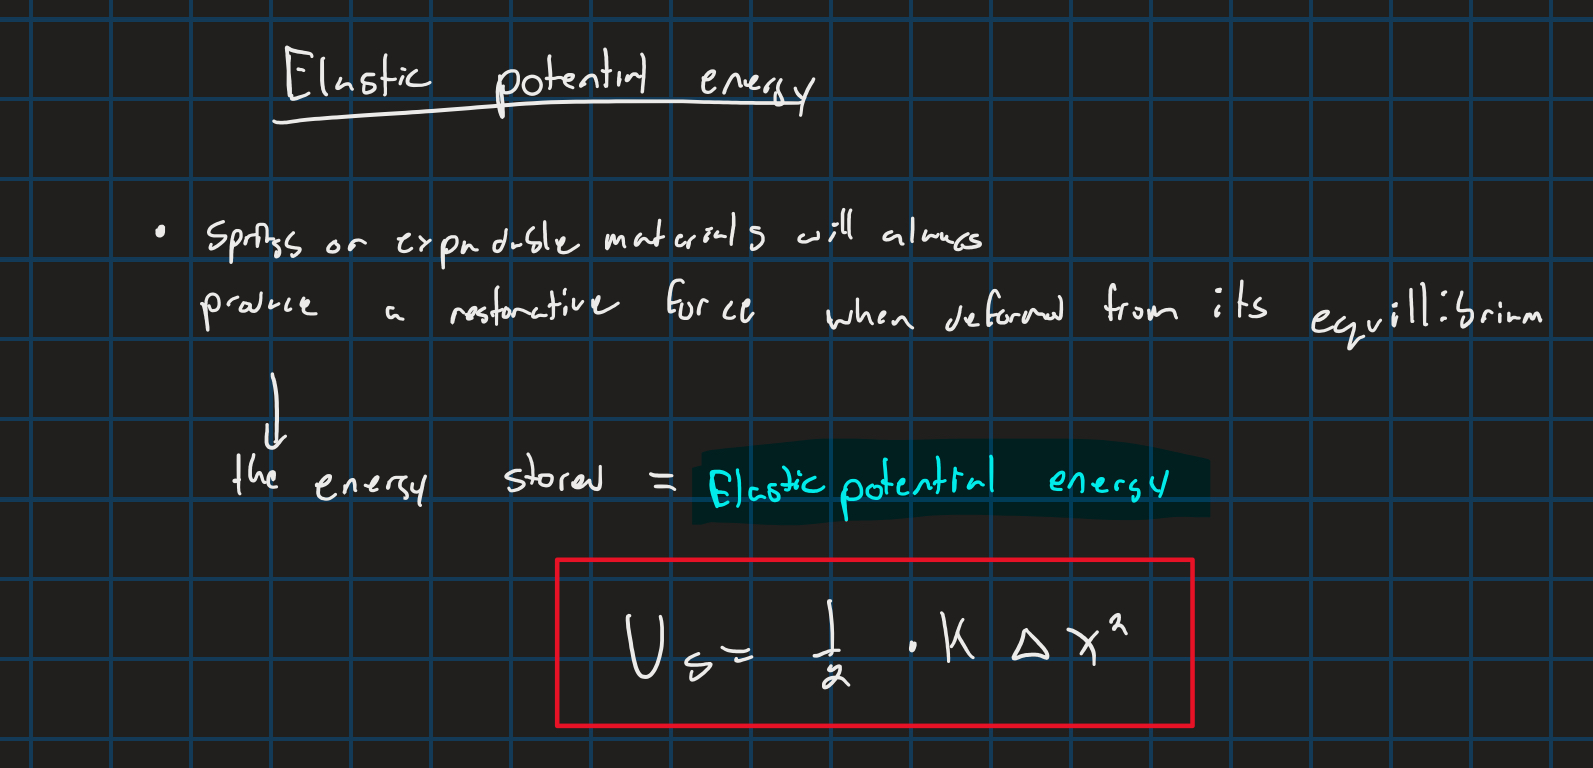 Elastic potential energy
• Springs or expandable materials will always
produce a restorative force when deformed from its equillibrium
↓
the energy stored = Elastic potential energy
U_s = 1/2 · K Δx²